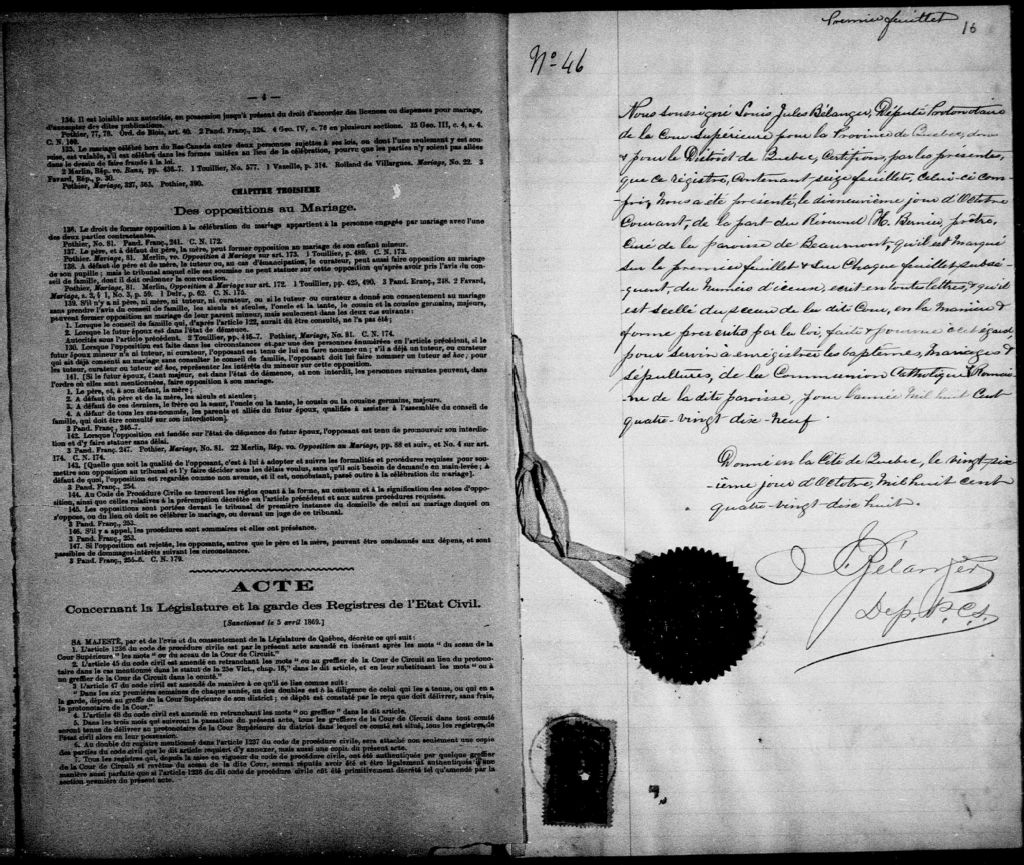 — 4 —
134. Il est loisible aux autorités, en possession jusqu'à présent du droit d'accorder des licences ou dispenses pour mariage,
d'exempter des dites publications.
Pothier, 77, 78. Ord. de Blois, art. 40. 2 Pand. Franç., 324. 4 Geo. IV, c. 76 en plusieurs sections. 35 Geo. III, c. 4, s. 4.
C. N. 169.
135. Le mariage célébré hors du Bas-Canada entre deux personnes sujettes à ses lois, ou dont l'une seulement y est sou-
mise, est valable, s'il est célébré dans les formes usitées au lieu de la célébration, pourvu que les parties n'y soient pas allées
dans le dessein de faire fraude à la loi.
2 Merlin, Rép. vo. Bans, pp. 436-7. 1 Touillier, No. 577. 1 Vazeille, p. 314. Rolland de Villargues, Mariage, No. 22. 3
Favard, Rép., p. 30.
Pothier, Mariage, 327, 363. Pothier, 390.
CHAPITRE TROISIEME
Des oppositions au Mariage.
136. Le droit de former opposition à la célébration du mariage appartient à la personne engagée par mariage avec l'une
des deux parties contractantes.
Pothier, No. 81. Pand. Franç., 241. C. N. 172.
137. Le père, et à défaut du père, la mère, peut former opposition au mariage de son enfant mineur.
Pothier, Mariage, 81. Merlin, vo. Opposition à Mariage sur art. 173. 1 Touillier, p. 489. C. N. 173.
138. A défaut de père et de mère, le tuteur ou, au cas d'émancipation, le curateur, peut aussi faire opposition au mariage
de son pupille; mais le tribunal auquel elle est soumise ne peut statuer sur cette opposition qu'après avoir pris l'avis du con-
seil de famille, dont il doit ordonner la convocation.
Pothier, Mariage, 81. Merlin, Opposition à Mariage sur art. 172. 1 Touillier, pp. 425, 490. 3 Pand. Franç., 248. 2 Favard,
Mariage, s. 2, § 1, No. 3, p. 59. 1 Delv., p. 62. C. N. 175.
139. S'il n'y a ni père, ni mère, ni tuteur, ni curateur, ou si le tuteur ou curateur a donné son consentement au mariage
sans prendre l'avis du conseil de famille, les aïeuls et aïeules, l'oncle et la tante, le cousin et la cousine germains, majeurs,
peuvent former opposition au mariage de leur parent mineur, mais seulement dans les deux cas suivants:
1. Lorsque le conseil de famille qui, d'après l'article 122, aurait dû être consulté, ne l'a pas été;
2. Lorsque le futur époux est dans l'état de démence.
Autorités sous l'article précédent. 2 Touillier, pp. 416-7. Pothier, Mariage, No. 81. C. N. 174.
130. Lorsque l'opposition est faite dans les circonstances et par une des personnes énumérées en l'article précédent, si le
futur époux mineur n'a ni tuteur, ni curateur, l'opposant est tenu de lui en faire nommer un; s'il a déjà un tuteur, ou curateur
qui ait déjà consenti au mariage sans consulter le conseil de famille, l'opposant doit lui faire nommer un tuteur ad hoc; pour
les tuteur, curateur ou tuteur ad hoc, représenter les intérêts du mineur sur cette opposition.
141. [Si le futur époux, étant majeur, est dans l'état de démence, et non interdit, les personnes suivantes peuvent, dans
l'ordre où elles sont mentionnées, faire opposition à son mariage.
1. Le père, et, à son défaut, la mère;
2. A défaut du père et de la mère, les aïeuls et aïeules;
3. A défaut de ces derniers, le frère ou la sœur, l'oncle ou la tante, le cousin ou la cousine germains, majeurs.
4. A défaut de tous les sus-nommés, les parents et alliés du futur époux, qualifiés à assister à l'assemblée du conseil de
famille, qui doit être consulté sur son interdiction].
3 Pand. Franç., 246-7.
142. Lorsque l'opposition est fondée sur l'état de démence du futur époux, l'opposant est tenu de promouvoir son interdic-
tion et d'y faire statuer sans délai.
3 Pand. Franç. 247. Pothier, Mariage, No. 81. 22 Merlin, Rép. vo. Opposition au Mariage, pp. 88 et suiv., et No. 4 sur art.
174. C. N. 174.
143. [Quelle que soit la qualité de l'opposant, c'est à lui à adopter et suivre les formalités et procédures requises pour sou-
mettre son opposition au tribunal et l'y faire décider sous les délais voulus, sans qu'il soit besoin de demande en main-levée; à
défaut de quoi, l'opposition est regardée comme non avenue, et il est, nonobstant, passé outre à la célébration du mariage].
3 Pand. Franç., 254.
144. Au Code de Procédure Civile se trouvent les règles quant à la forme, au contenu et à la signification des actes d'oppo-
sition, ainsi que celles relatives à la préremption décrétée en l'article précédent et aux autres procédures requises.
145. Les oppositions sont portées devant le tribunal de première instance du domicile de celui au mariage duquel on
s'oppose, ou du lieu où doit se célébrer le mariage, ou devant un juge de ce tribunal.
3 Pand. Franç., 253.
146. S'il y a appel, les procédures sont sommaires et elles ont préséance.
3 Pand. Franç., 253.
147. Si l'opposition est rejetée, les opposants, autres que le père et la mère, peuvent être condamnés aux dépens, et sont
passibles de dommages-intérêts suivant les circonstances.
3 Pand. Franç., 255-6. C. N. 179.
ACTE
Concernant la Législature et la garde des Registres de l'Etat Civil.
[Sanctionné le 5 avril 1869.]
SA MAJESTÉ, par et de l'avis et du consentement de la Législature de Québec, décrète ce qui suit:
1. L'article 1236 du code de procédure civile est par le présent acte amendé en insérant après les mots " du sceau de la
Cour Supérieure " les mots " ou du sceau de la Cour de Circuit."
2. L'article 45 du code civil est amendé en retranchant les mots " ou au greffier de la Cour de Circuit au lieu du protono-
taire dans le cas mentionné dans le statut de la 25e Vict., chap. 16," dans le dit article, et en leur substituant les mots " ou à
un greffier de la Cour de Circuit dans le comté."
3 L'article 47 du code civil est amendé de manière à ce qu'il se lise comme suit:
" Dans les six premières semaines de chaque année, un des doubles est à la diligence de celui qui les a tenus, ou qui en a
la garde, déposé au greffe de la Cour Supérieure de son district; ce dépôt est constaté par le reçu que doit délivrer, sans frais,
le protonotaire de la Cour."
4. L'article 48 du code civil est amendé en retranchant les mots " ou greffier " dans le dit article.
5. Dans les trois mois qui suivront la passation du présent acte, tous les greffiers de la Cour de Circuit dans tout comté
seront tenus de délivrer au protonotaire de la Cour Supérieure du district dans lequel ce comté est situé, tous les registres de
l'état civil alors en leur possession.
6. Au double du registre mentionné dans l'article 1237 du code de procédure civile, sera attaché non seulement une copie
des parties du code civil que le dit article requiert d'y annexer, mais aussi une copie du présent acte.
7. Tous les registres qui, depuis la mise en vigueur du code de procédure civile, ont été authentiqués par quelque greffier
de la Cour de Circuit et revêtus du sceau de la dite Cour, seront réputés avoir été et être légalement authentiqués d'une
manière aussi parfaite que si l'article 1236 du dit code de procédure civile eût été primitivement décrété tel qu'amendé par la
section première du présent acte.
Premier feuillet
16
No 46
Nous soussigné Louis Jules Bélanger, Député Protonotaire
de la Cour Supérieure pour la Province de Quebec, dans
& pour le District de Quebec, Certifions, par les présentes,
que ce régistre, Contenant seize feuillets, Celui-ci Com-
-pris, Nous a été présenté, le dixneuvième jour d'Octobre
Courant, de la part du Révérend H. Bernier, prêtre,
Curé de la paroisse de Beaumont, qu'il est Marqué
sur le premier feuillet & sur Chaque feuillet subsé-
quent, du Numéro d'icelui, écrit en toutes lettres, & qu'il
est scellé du sceau de la dite Cour, en la Manière &
forme prescrites par la loi, faite & pourvue à cet égard,
pour servir à enregistrer les baptêmes, Mariages &
Sépultures, de la Communion Catholique & Romai-
ne de la dite paroisse, pour l'année Mil huit Cent
quatre-vingt dix-neuf
Donné en la Cité de Quebec, le vingt-six-
-ième jour d'Octobre, Mil huit cent
quatre-vingt dix huit.
L J Bélanger
Dép. P. C. S.